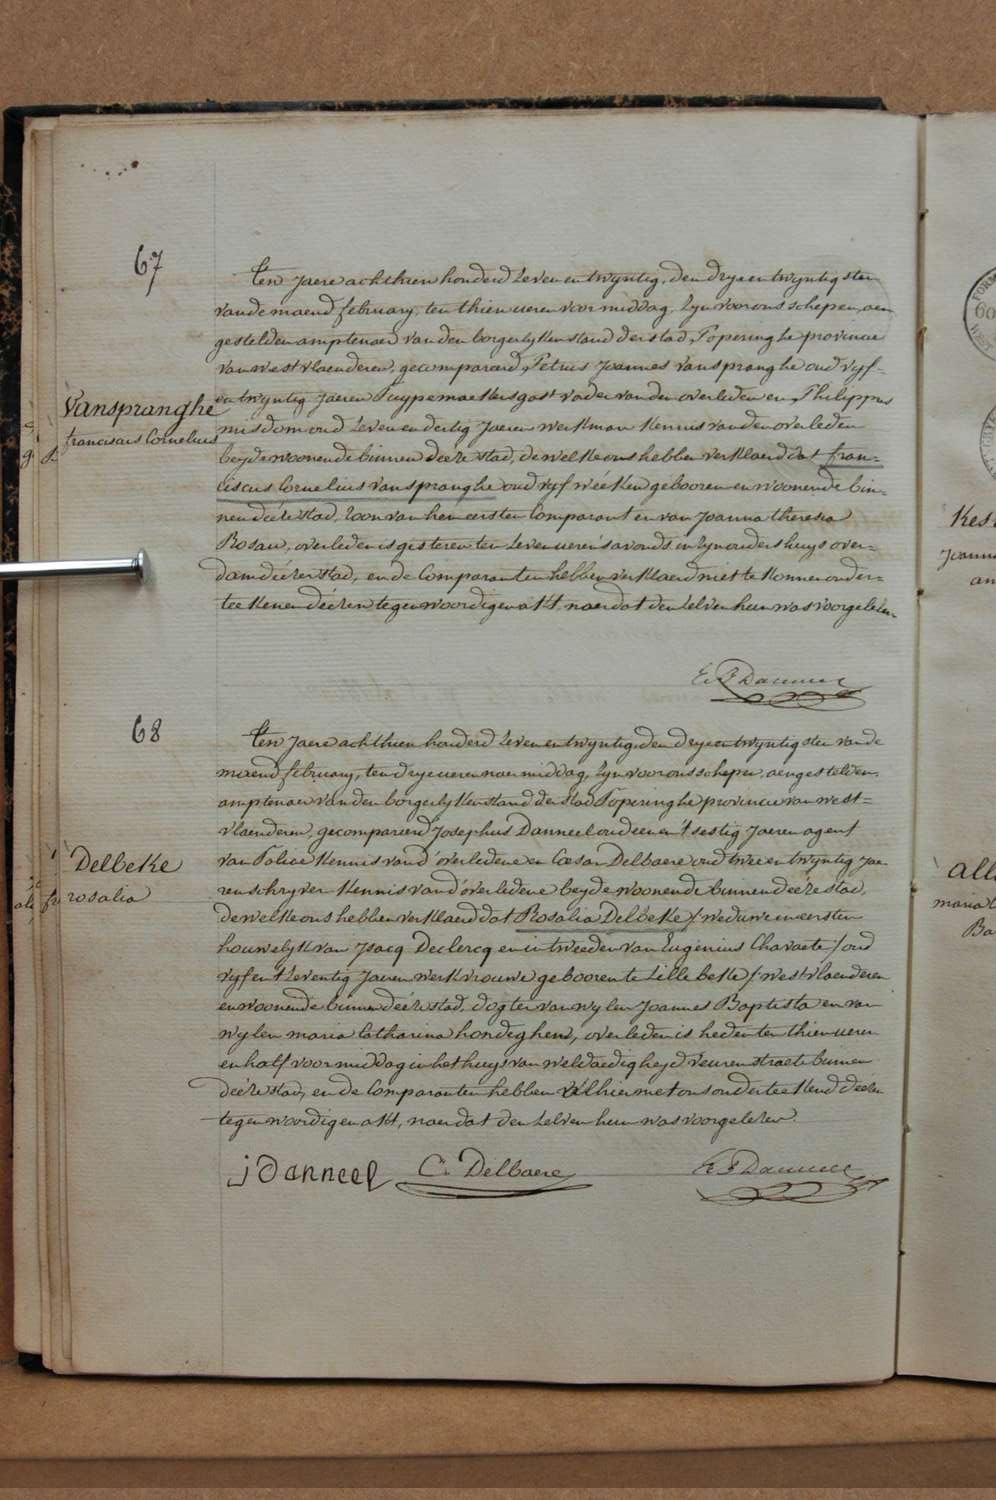 67
Ten jaere achthien honderd zeven en twyntig, den dryeentwyntigsten
van de maend february, ten thien ueren voormiddag, zyn voor ons schepen, aen
gestelden amptenaer van den borgerlyken stand der stad Poperinghe provincie
van westvlaenderen, gecompareerd Petrus Joannes Vanspranghe oud vyf-
en twyntig Jaeren Kuypemaekersgast vader van den overleden en Philippus
misdom oud zeven en dertig Jaeren werkman Kennis van den overleden
beyde woonende binnen deéze stad, de welke ons hebben verklaerd dat fran=
ciscus Cornelius vanspranghe oud vyf wéeken gebooren en woonende bin=
nen déeze stad, zoon van hem eersten Comparant en van Joanna theresia
Rosau, overleden is gisteren ten zeven ueren s'avonds in zyn ouders huys
dam déezer stad, en de Comparanten hebben verklaerd niet te konnen onder=
teekenen déezen tegenwoordigen akt, naer dat den zelven hun was voorgelezen.
Vanspranghe
franciscus Cornelius
68
Ten Jaere achthien honderd zeven en twyntig, den dryeentwyntigsten van de
maend february, ten drye ueren naermiddag, zyn voor ons schepen, aengestelden
amptenaer van den borgerlyken stand der stad Poperinghe provincie van west=
vlaenderen, gecompareerd Josephus Danneel oud een en 't sestig Jaeren agent
van Police Kennis van d'overledene en Cæsar Delbaere oud twee en twyntig Jae
ren schryver Kennis van d'overledene beyde woonende binnen deéze stad,
de welke ons hebben verklaerd dat Rosalia Delbeke / weduwe in eersten
houwelyk van Isacq Declercq en in tweeden van Eugenius Chavaete / oud
vyf en t'zeventig Jaeren werkvrouwe gebooren te Zillebeke / westvlaenderen
en woonende binnen déeze stad, dogter van wylen Joannes Baptista en van
wylen maria Catharina hondeghem, overleden is heden ten thien ueren
en half voormiddag in het huys van weldaedigheyd veurenstraete binnen
déeze stad, en de Comparanten hebben hier met ons onderteekend déezen
tegenwoordigen akt, naer dat den zelven hun was voorgelezen.
Delbeke
rosalia
j Danneel C. Delbaere
Kes
Joanne
an
alle
maria
Ba